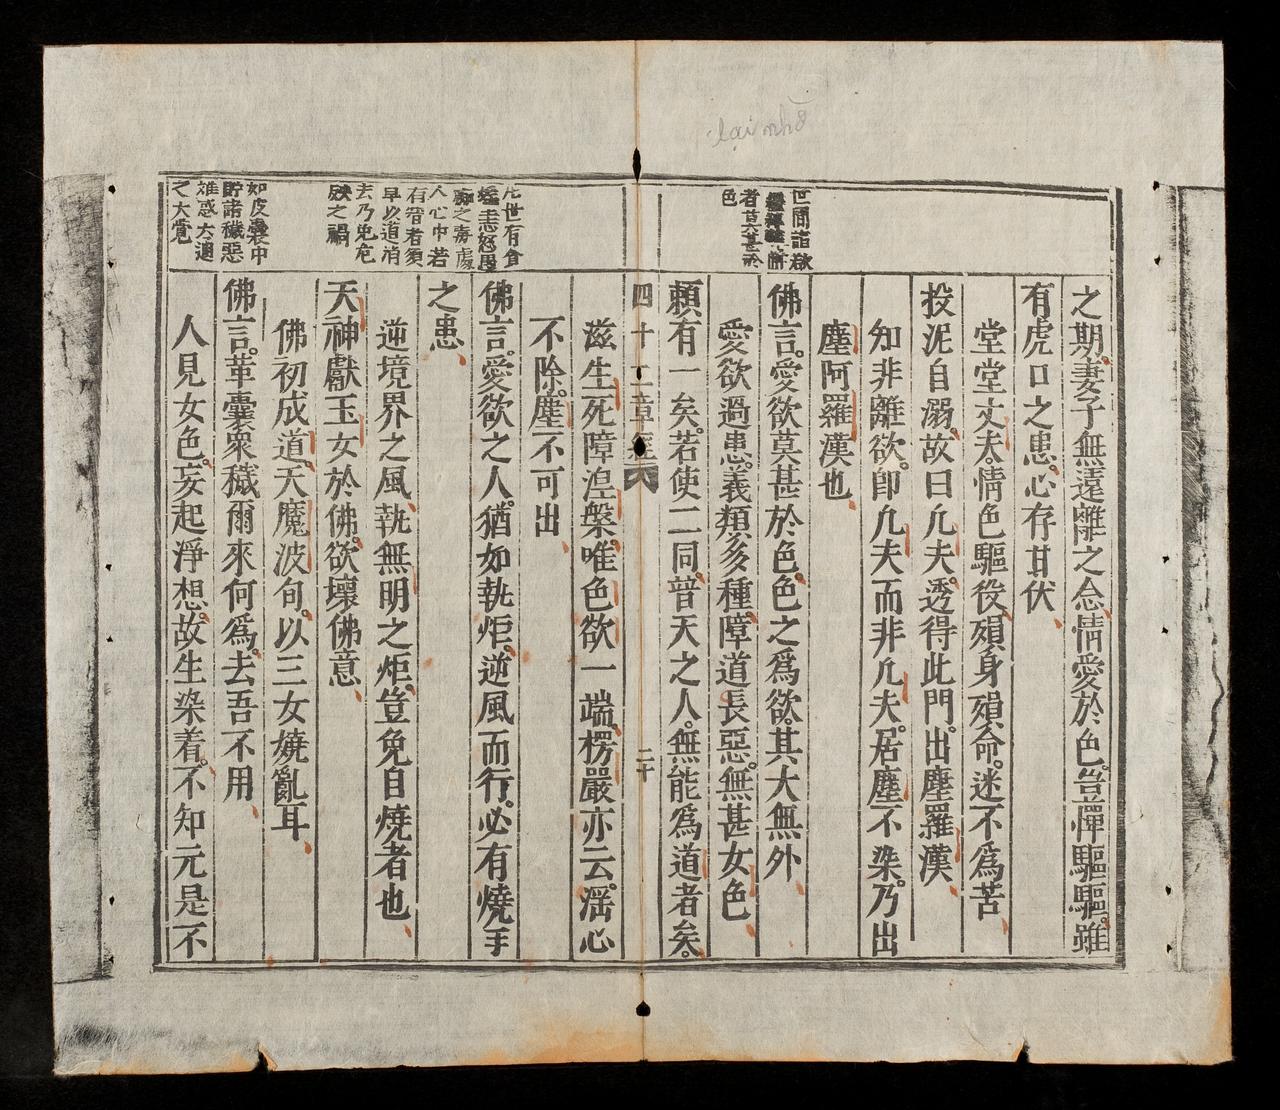 lại nhỡ
世間諸欲
者莫甚於
色
之期妻子無遠離之念情愛於色豈憚驅驅雖
有虎口之患心存甘伏
堂堂丈夫情色驅役殞身殞命迷不爲苦
投泥自溺故曰凢夫透得此門出塵羅漢
知非離欲卽凢夫而非凢夫居塵不染乃出
塵阿羅漢也
佛言愛欲莫甚於色色之爲欲其大無外
愛欲過患義類多種障道長惡無甚女色
頼有一矣若使二同普天之人無能爲道者矣
四十二章經 二十
凢世有貪
婬恚怒愚
癡之毒處
人心中若
有智者須
早以道消
去乃免危
殃之禍
如皮囊中
貯諸穢惡
雖惑大通
之大覺
滋生死障湼槃唯色欲一端楞嚴亦云滛心
不除塵不可出
佛言愛欲之人猶如執炬逆風而行必有燒手
之患
逆境界之風執無明之炬豈免自燒者也
天神獻玉女於佛欲壞佛意
佛初成道天魔波旬以三女嬈亂耳
佛言革囊衆穢爾來何爲去吾不用
人見女色妄起淨想故生染着不知元是不